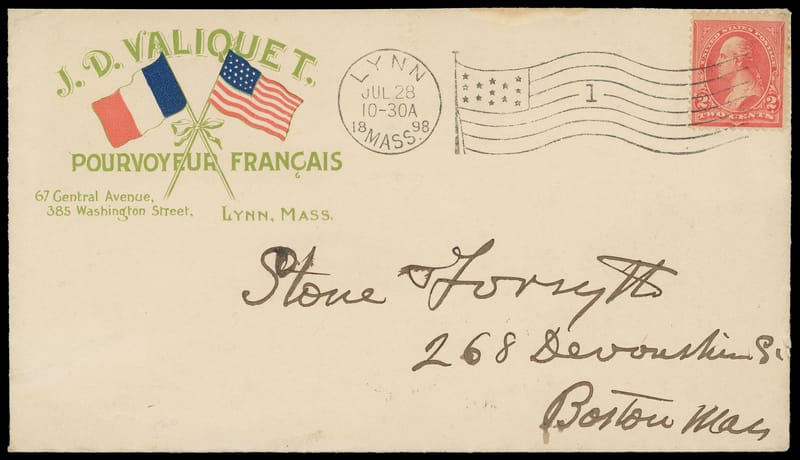 J. D. VALIQUET.
POURVOYEUR FRANÇAIS
67 Central Avenue,
385 Washington Street,
LYNN, MASS.
LYNN
JUL 28
10-30A
18 98
MASS.
1
UNITED STATES POSTAGE
2 2
TWO CENTS
Stone & Forsyth
268 Devonshire St
Boston Mass